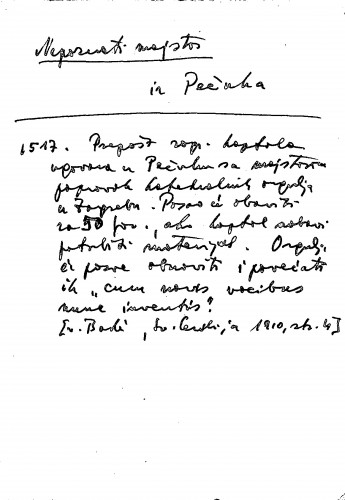 Nepoznati majstor
iz Pečuha
1517. Prepošt zagr. kaptola
ugovara u Pečuhu sa majstorom
popravak katedralnih orgulja
u Zagrebu. Posao će obaviti
za 50 for., ako kaptol nabavi
potrebiti materijal. Orgulje
će posve obnoviti i povećati
ih „cum novis vocibus
nunc inventis"
[v. Barlè, Sv. Cecilija 1910, str. 4]